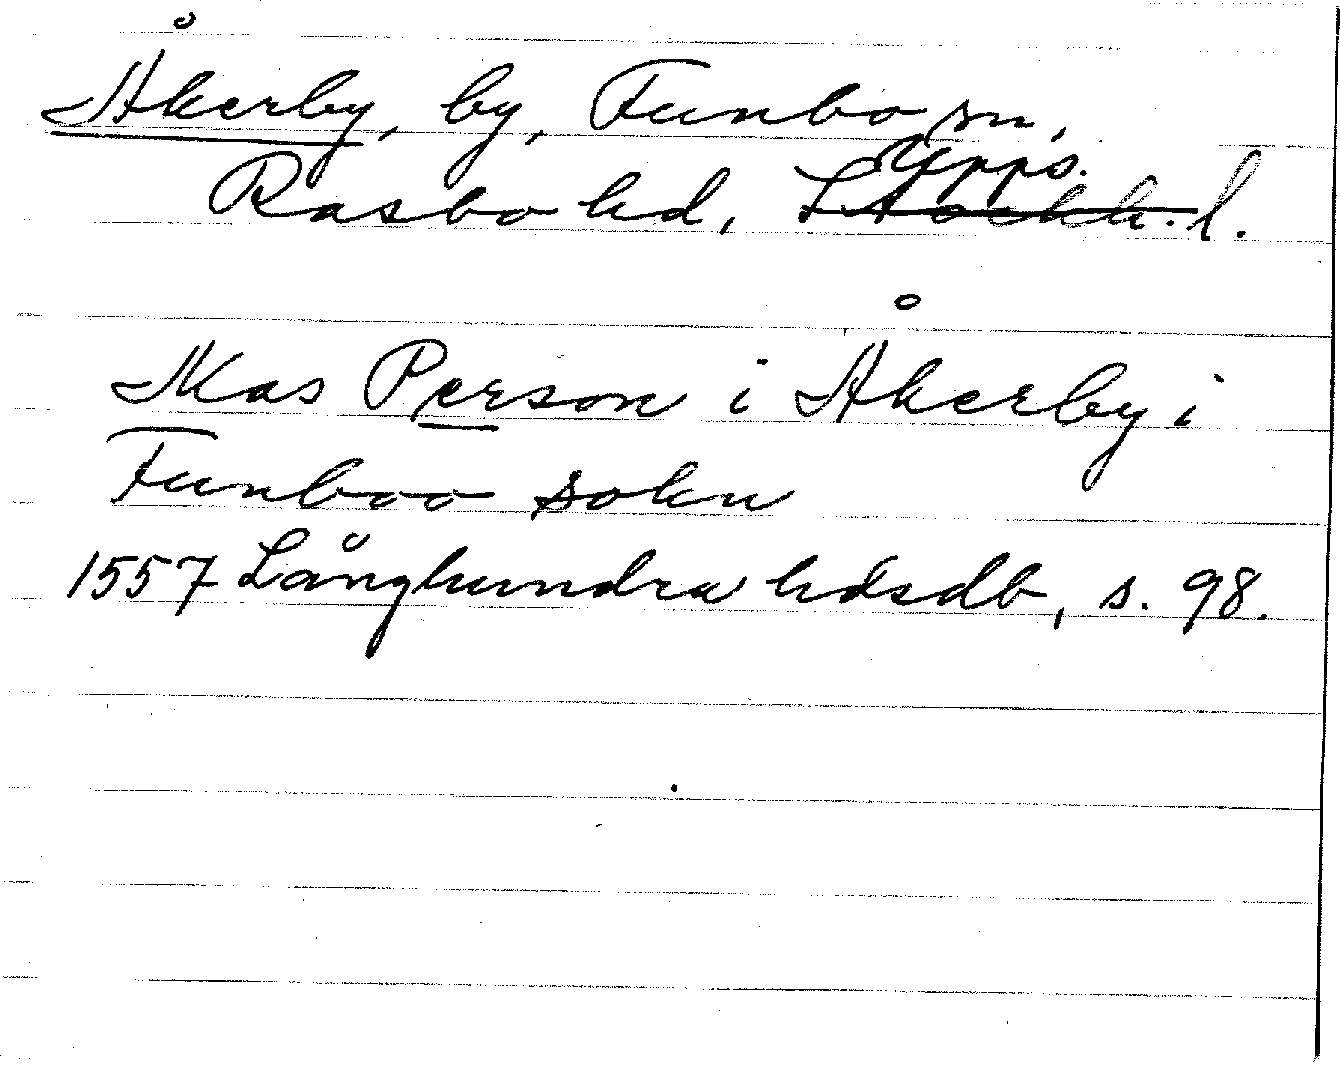 Åkerby, by, Funbo sn,
Rasbo hd, Stockh. Upps. l.
Mas Person i Åkerby i
Funboo sokn
1557 Långhundra hdsdb, s. 98.